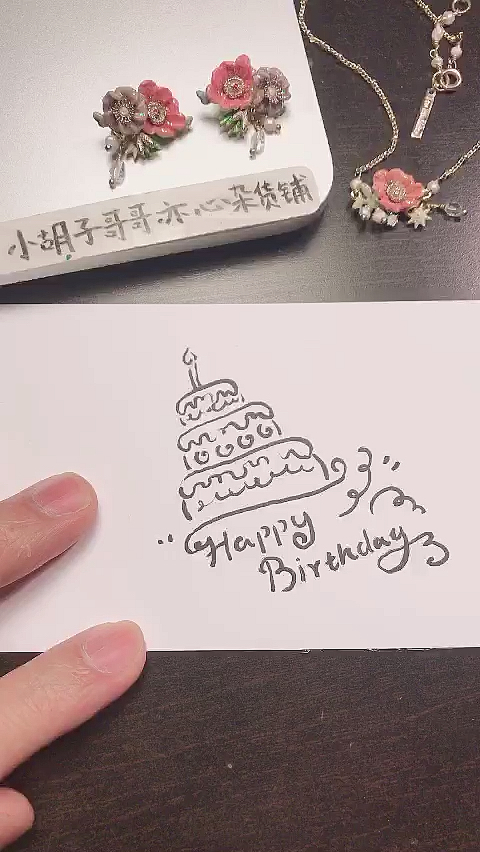 小胡子哥哥亦心杂货铺
Happy
Birthday